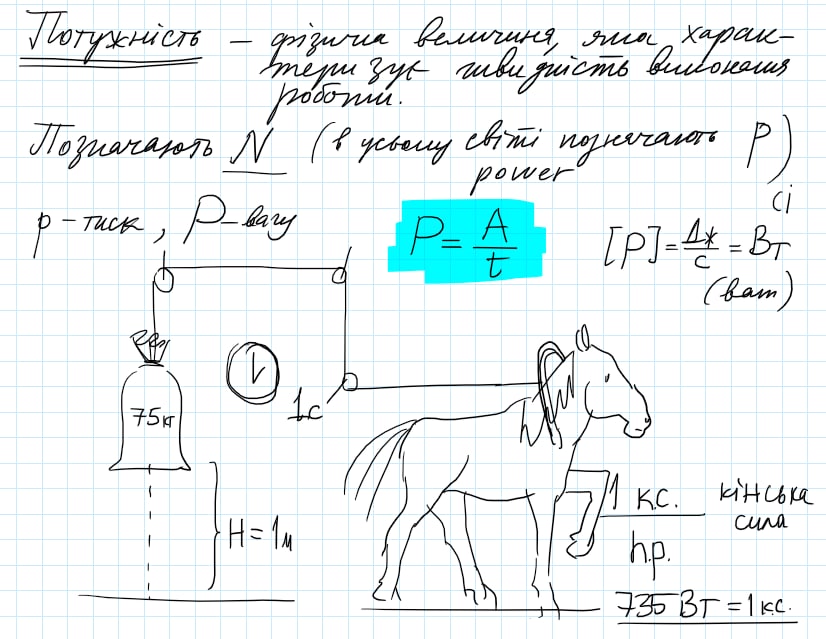 Потужність – фізична величина, яка харак-
теризує швидкість виконання
роботи.
Позначають N (в усьому світі позначають P)
power
p – тиск, P – вагу
P = A/t
сі
[P] = Дж/с = Вт
(ват)
1с
75кг
H = 1м
1 к.с. кінська сила
h.p.
735 Вт = 1 к.с.